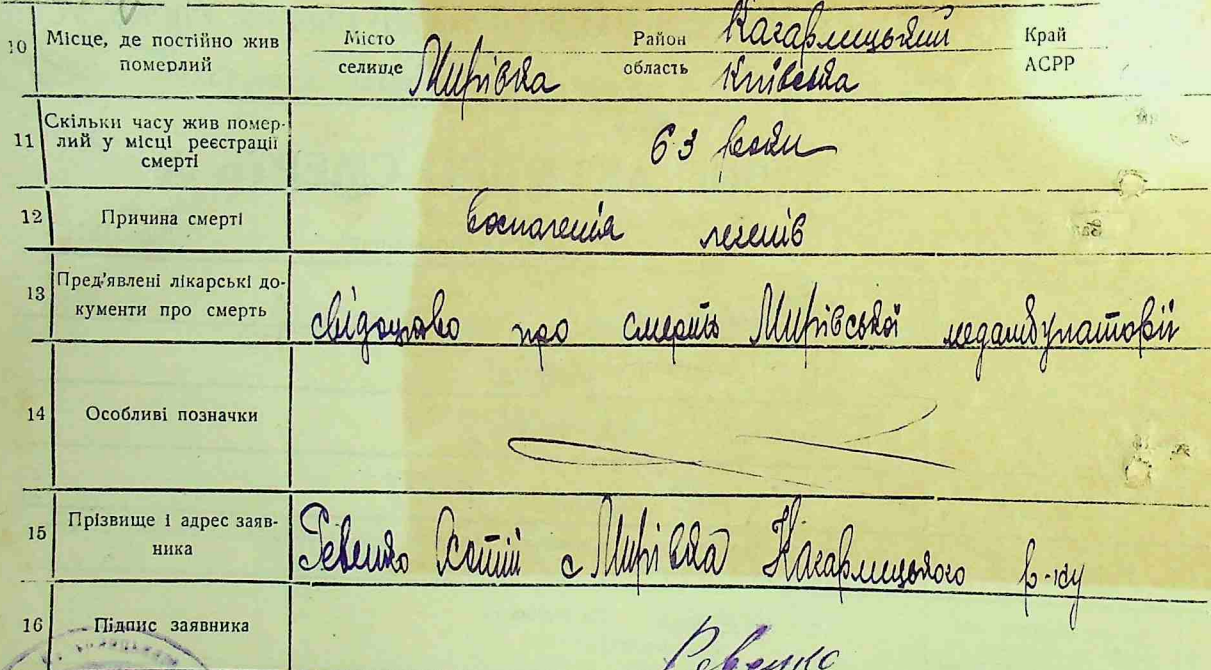 10 Місце, де постійно жив Місто Район Кагарлицький Край
померлий селище Мирівка область Київська АСРР
11 Скільки часу жив помер-
лий у місці реєстрації 63 роки
смерті
12 Причина смерті воспаленія легенів
13 Пред'явлені лікарські до-
кументи про смерть свідоцтво про смерть Мирівської медамбулаторії
14 Особливі позначки
15 Прізвище і адрес заяв-
ника Ревенко с Мирівка Кагарлицького р-ну
16 Підпис заявника Ревенко